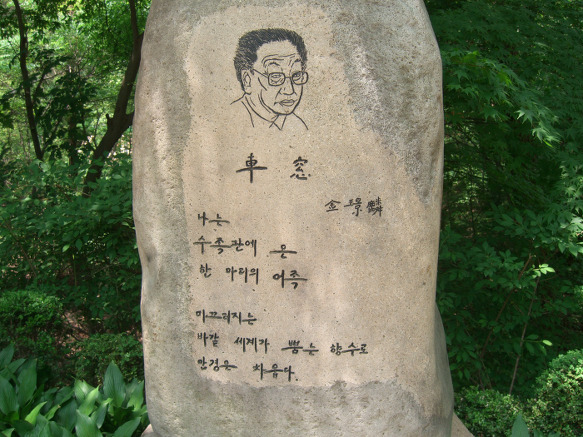 車窓
金璟麟
나는
수족관에 온
한 마리의 어족
미끄러지는
바깥 세계가 뿜는 향수로
안경은 차웁다.